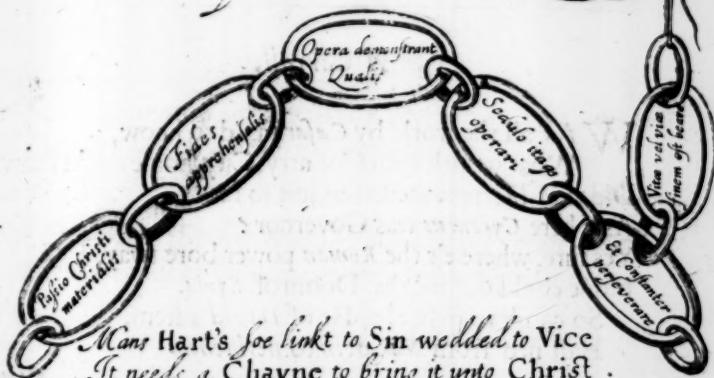 Passio Christi
materialis
Fides
apprehensalis
Opera demonstrant
Qualis
Sedulo itaqs
operari
Et Constanter
perseverare
finem est beare
Mans Hart's soe linkt to Sin wedded to Vice
It needs a Chayne to bring it unto Christ.